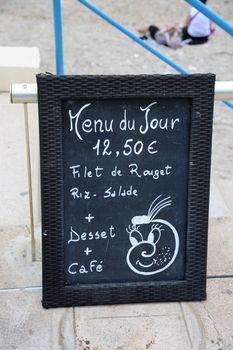 Menu du Jour
12,50€
Filet de Rouget
Riz - Salade
+
Desset
+
Café